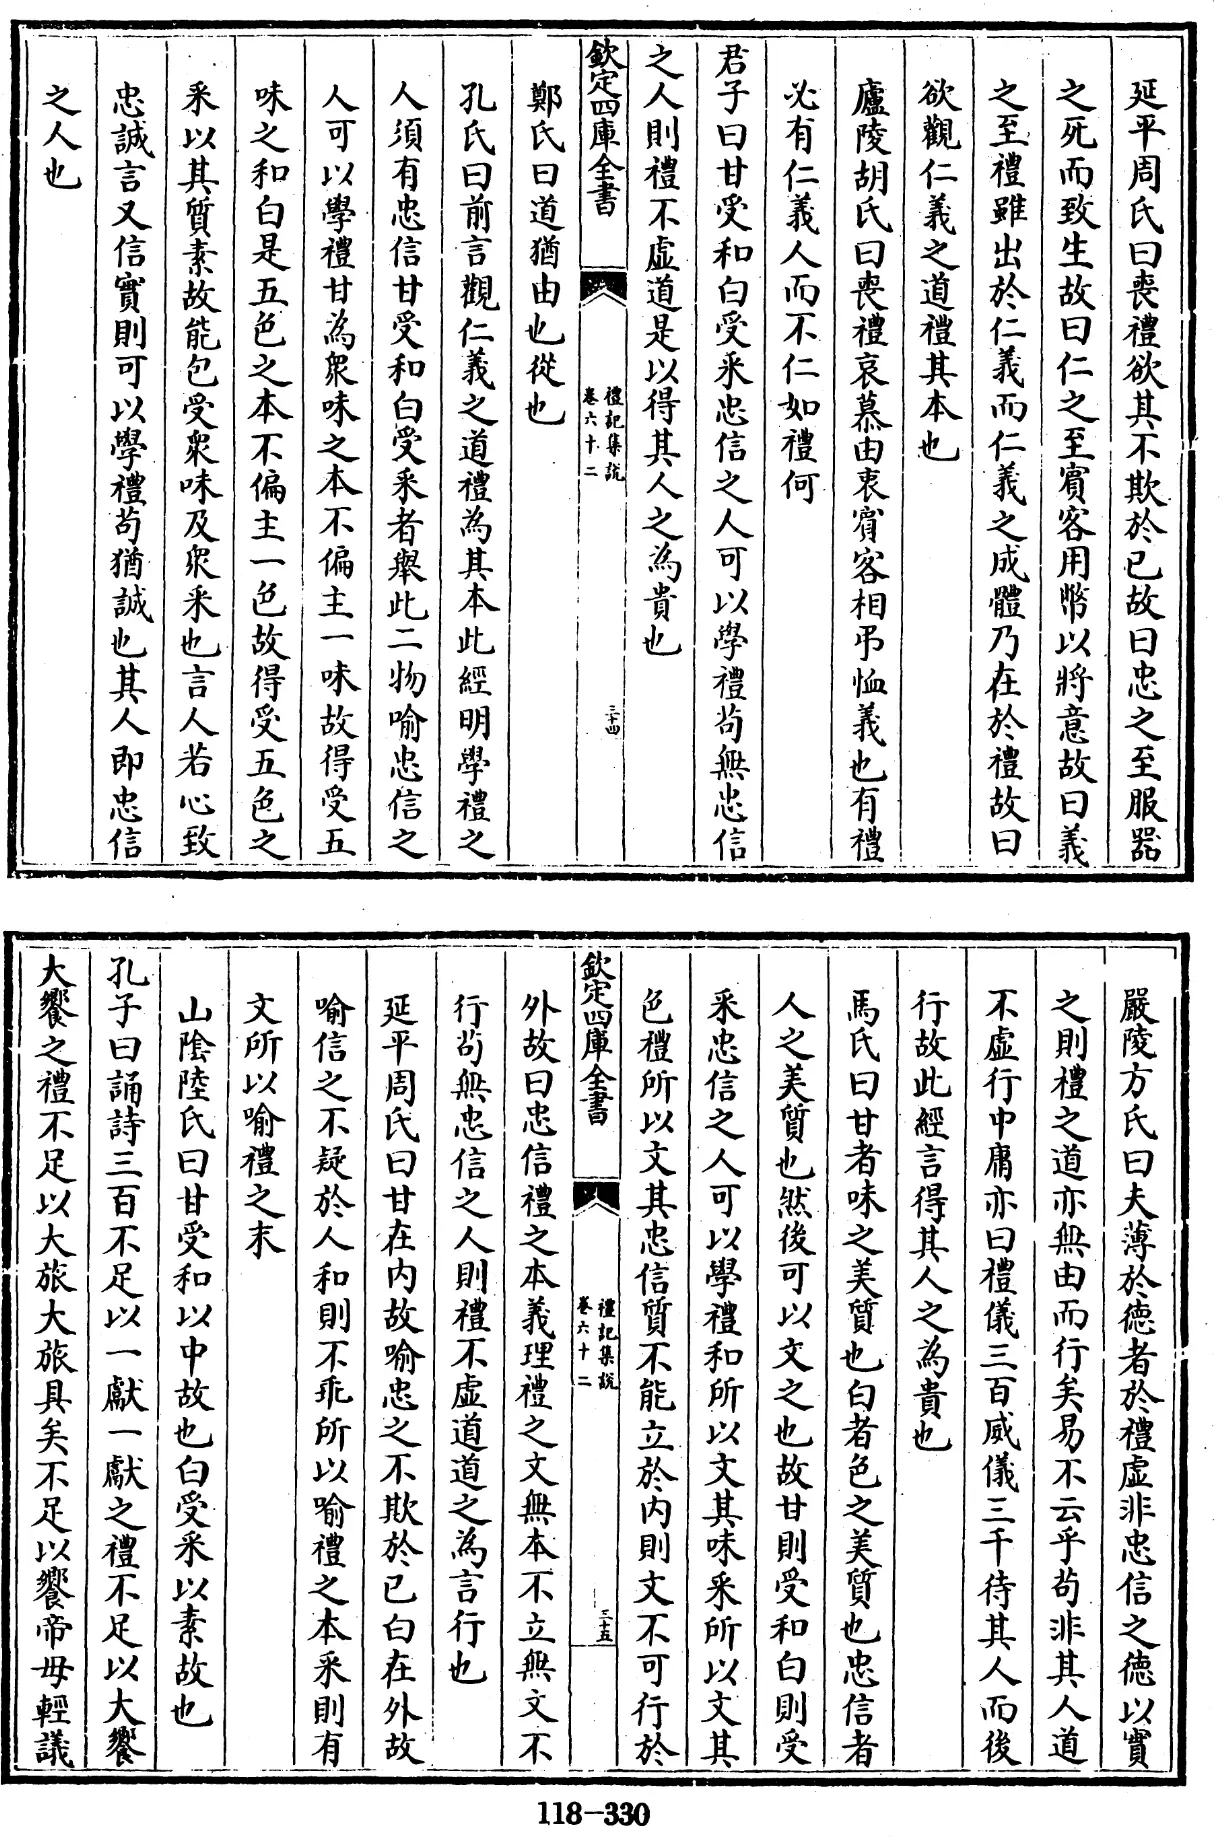 延平周氏曰喪禮欲其不欺於己故曰忠之至服器
之死而致生故曰仁之至賔客用幣以將意故曰義
之至禮雖出於仁義而仁義之成體乃在於禮故曰
欲觀仁義之道禮其本也
廬陵胡氏曰喪禮哀慕由衷賔客相弔恤義也有禮
必有仁義人而不仁如禮何
君子曰甘受和白受釆忠信之人可以學禮茍無忠信
之人則禮不虛道是以得其人之為貴也
欽定四庫全書
禮記集說
卷六十二
三十四
鄭氏曰道猶由也從也
孔氏曰前言觀仁義之道禮為其本此經明學禮之
人須有忠信甘受和白受釆者舉此二物喻忠信之
人可以學禮甘為衆味之本不偏主一味故得受五
味之和白是五色之本不偏主一色故得受五色之
釆以其質素故能包受衆味及衆釆也言人若心致
忠誠言又信實則可以學禮茍猶誠也其人即忠信
之人也
嚴陵方氏曰夫薄於德者於禮虛非忠信之德以實
之則禮之道亦無由而行矣易不云乎茍非其人道
不虛行中庸亦曰禮儀三百威儀三千待其人而後
行故此經言得其人之為貴也
馬氏曰甘者味之美質也白者色之美質也忠信者
人之美質也然後可以文之也故甘則受和白則受
釆忠信之人可以學禮和所以文其味釆所以文其
色禮所以文其忠信質不能立於内則文不可行於
欽定四庫全書
禮記集說
卷六十二
三十五
外故曰忠信禮之本義理禮之文無本不立無文不
行茍無忠信之人則禮不虛道道之為言行也
延平周氏曰甘在内故喻忠之不欺於己白在外故
喻信之不疑於人和則不乖所以喻禮之本釆則有
文所以喻禮之末
山陰陸氏曰甘受和以中故也白受釆以素故也
孔子曰誦詩三百不足以一獻一獻之禮不足以大饗
大饗之禮不足以大旅大旅具矣不足以饗帝毋輕議
118-330